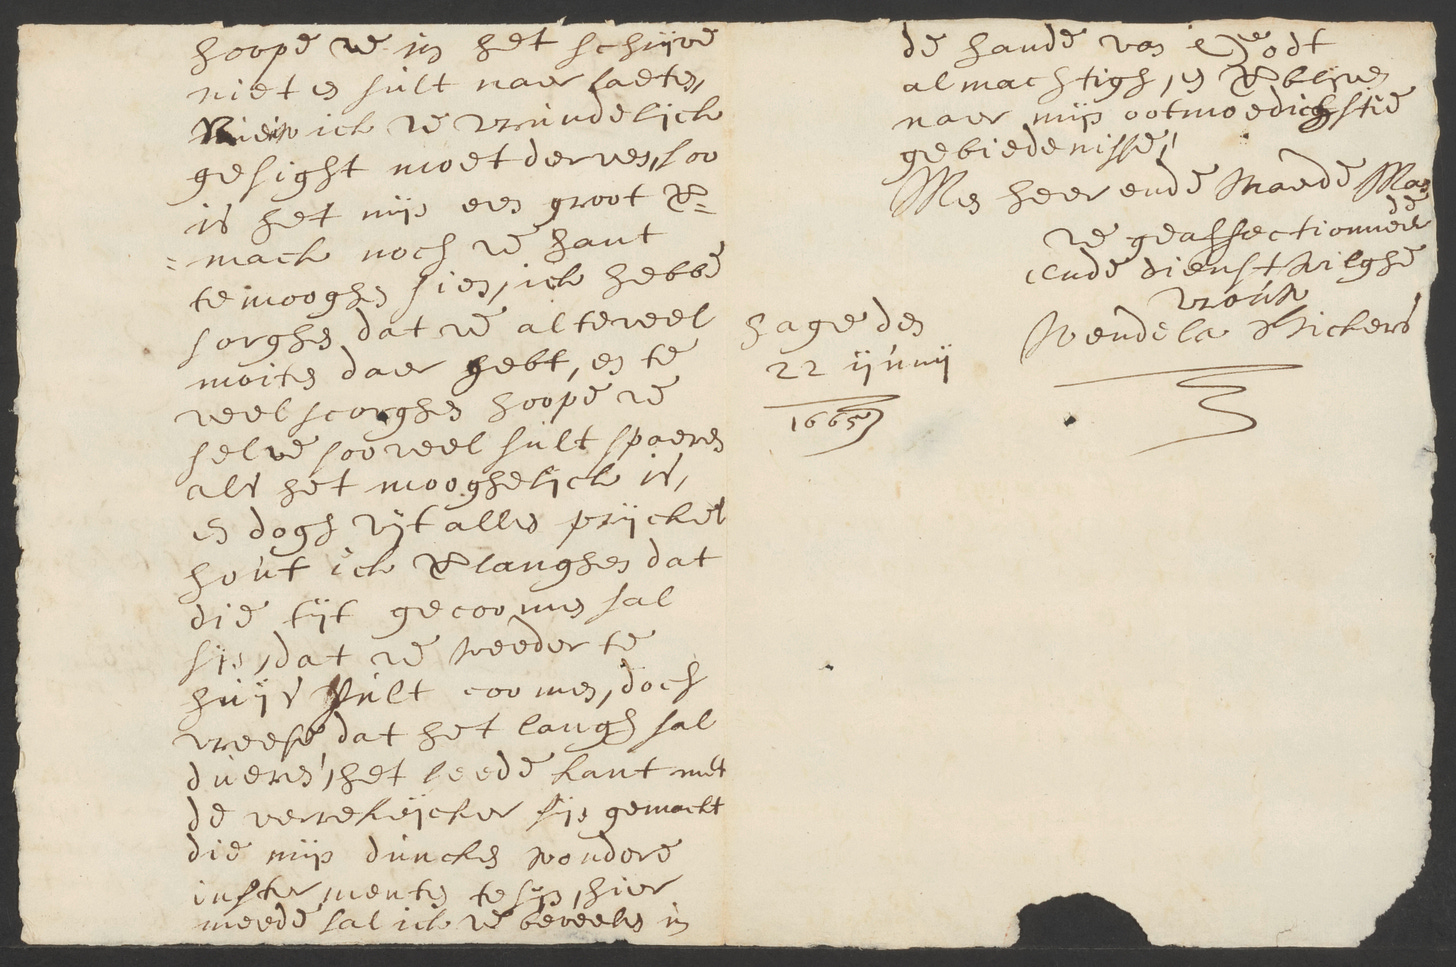 hoope ue in het schrijve
niet en sult naer laeten,
ick ue vrundelijck
gesight moet derven, soo
is het mijn een groot ver=
=mack noch ue hant
te mooghen sien, ick hebbe
sorghen dat ue al te veel
moiten daer hebt, en te
veel scorghen hoope ue
selve soo veel sult spaeren
als het mooghelijck is,
en dogh uijt alles prijckel
hout ick verlanghen dat
die tijt gecoomen sal
sijn, dat ue weeder te
huijs sult coomen, doch
vreese dat het langh sal
dueren, het leede kant met
de verrekijcker sijn gemackt
die mijn duncken wondere
instermenten te sijn, hier
meede sal ick ue beveelen in
de hande van Godt
almachtigh, en verblijven
naer mijn ootmoedichstie
gebiedenisse,
Men heer ende Waerde Man
ue geaffectionneerde
ende dienstwilghe
vrouw
Wendela Bickers
hage den
22 ijunij
1665